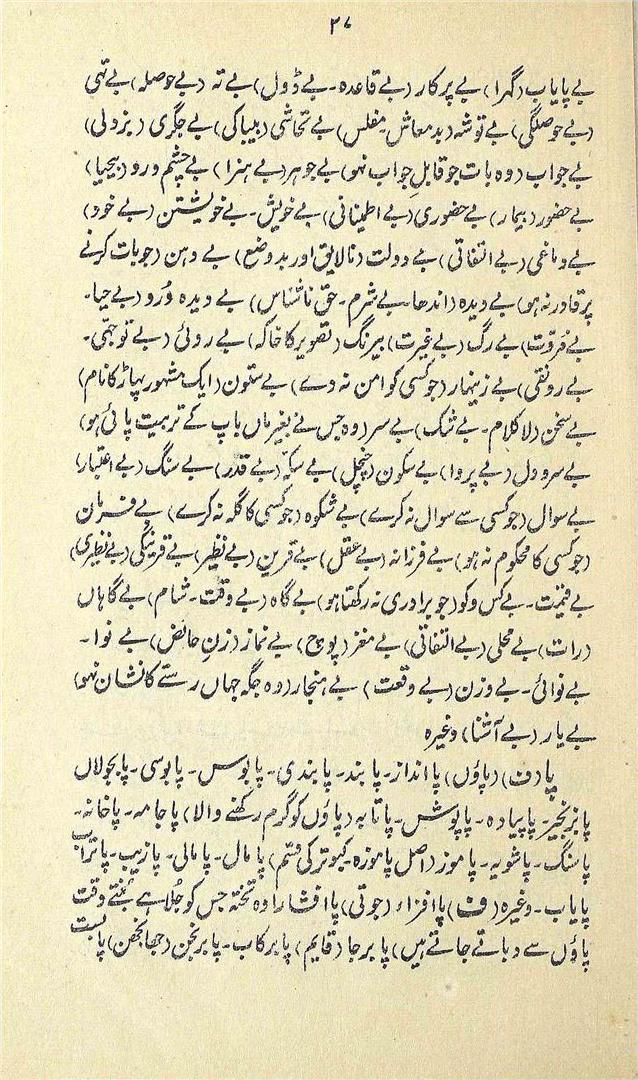 ۲۷
بے پایاب (گہرا) بے پرکار (بے قاعدہ۔ بے ڈول) بے تہ (بے حوصلہ) بے تہی
(بے حوصلگی) بے توشہ (بدمعاش۔ مفلس) بے تحاشی (بیباکی) بے جگری (بزدلی)
بے جواب (وہ بات جو قابلِ جواب نہو) بے جوہر (بے ہنرا) بے چشم ورو (بیحیا)
بے حضور (بیمار) بے حضوری (بے اطمینانی) بے خویش۔ بے خویشتن (بے خود)
بے دماغی (بے التفاتی) بے دولت (نالایق اور بد وضع) بے دہن (جو بات کرنے
پر قادر نہ ہو) بے دیدہ (اندھا بے شرم۔ حق ناشناس) بے دیدہ ورو (بے حیا۔
بے مُروّت) بے رگ (بے غیرت) بیرنگ (تصویر کا خاکہ) بے روئی (بے توجہی۔
بے رونقی) بے زینہار (جو کسی کو امن نہ دے) بے ستون (ایک مشہور پہاڑ کا نام)
بے سخن (لا کلام۔ بے شک) بے سر (وہ جس نے بغیر ماں باپ کے تربیت پائی ہو)
بے سرو دل (بے پروا) بے سکون (چنچل) بے سکہ (بے قدر) بے سنگ (بے اعتبار)
بے سوال (جو کسی سے سوال نہ کرے) بے شکوہ (جو کسی کا گلہ نہ کرے) بے فرمان
(جو کسی کا محکوم نہ ہو) بے فرزانہ (بے عقل) بے قرین (بے نظیر) بے قرینگی (بے نظیری)
بے قیمت۔ بے کس و کو (جو برادری نہ رکھتا ہو) بے گاہ (بے وقت۔ شام) بے گاہاں
(رات) بے محلی (بے التفاتی) بے مغز (پوچ) بے نماز (زنِ حائض) بے نوا۔
بے نوائی۔ بے وزن (بے وقعت) بے ہنجار (وہ جگہ جہاں رستے کا نشان نہو)
بے یار (بے آشنا) وغیرہ
پا (ف) (پاؤں) پا انداز۔ پا بند۔ پا بندی۔ پا بوس۔ پا بوسی۔ پا بجولاں
پا بزنجیر۔ پا پیادہ۔ پاپوش۔ پا تابہ (پاؤں کو گرم رکھنے والا) پا جامہ۔ پا خانہ۔
پا سنگ۔ پا شویہ۔ پا موز (اصل پا موزہ۔ کبوتر کی قسم) پا مال۔ پا مالی۔ پا زیب۔ پا تراب
پا یاب۔ وغیرہ (ف) پا افزاء (جوتی) پا افشار (وہ تختہ جس کو جُلاہے بُنتے وقت
پاؤں سے دباتے جاتے ہیں) پا برجا (قایم) پا برکاب۔ پا برنجن (جھانجھن) پا بست